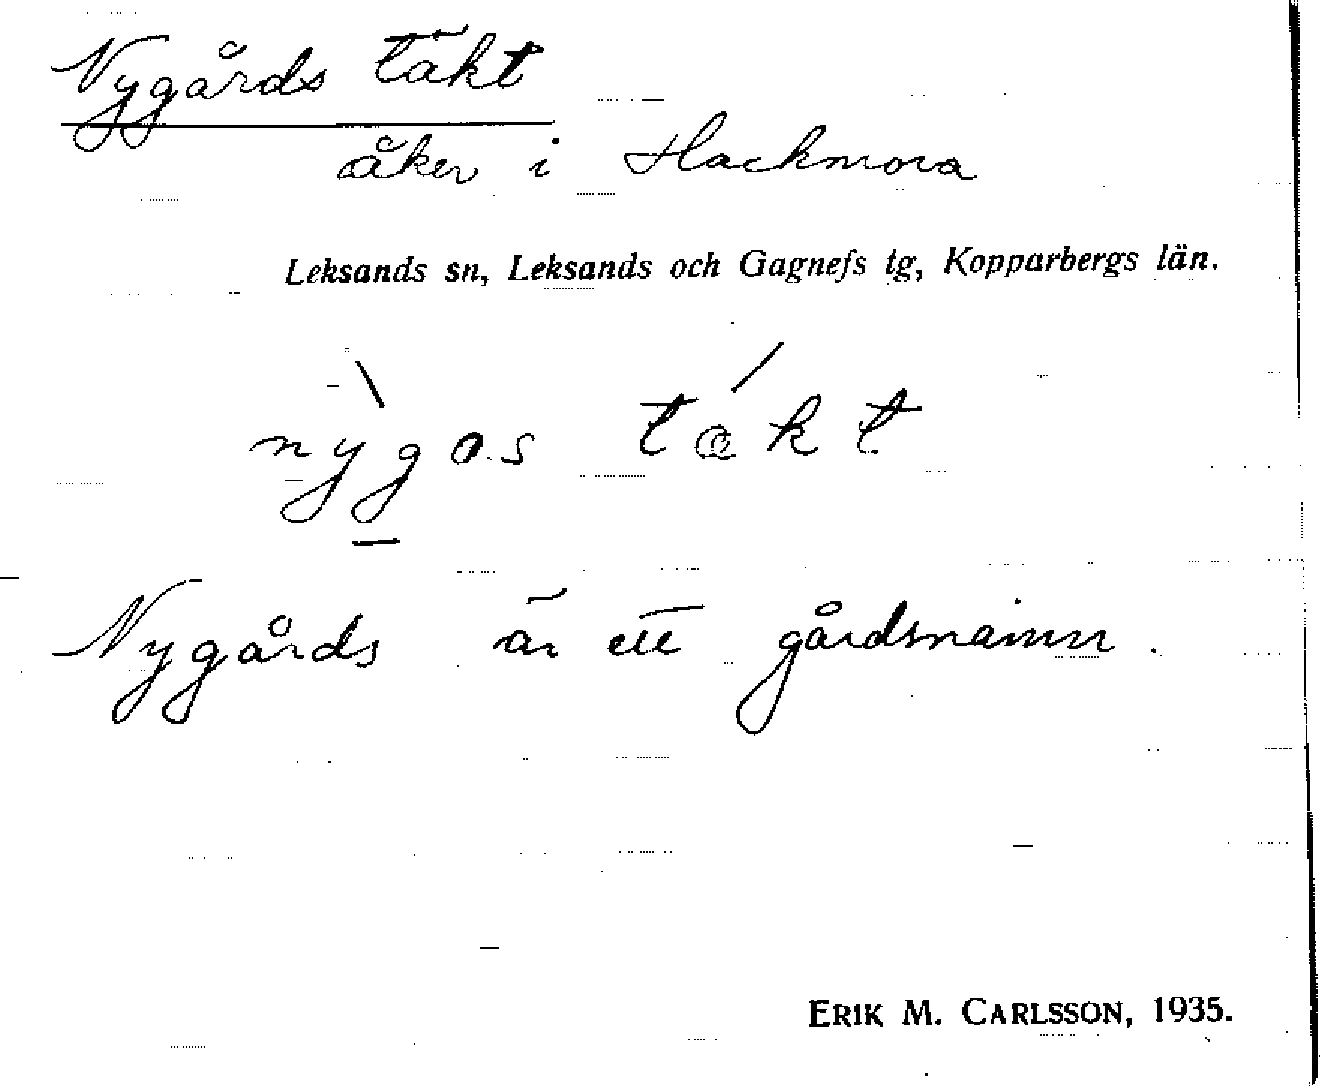 Nygårds täkt
åker i Hackmora
Leksands sn, Leksands och Gagnefs tg, Kopparbergs län.
nỳgos tákt
Nygårds är ett gårdsnamn.
ERIK M. CARLSSON, 1935.